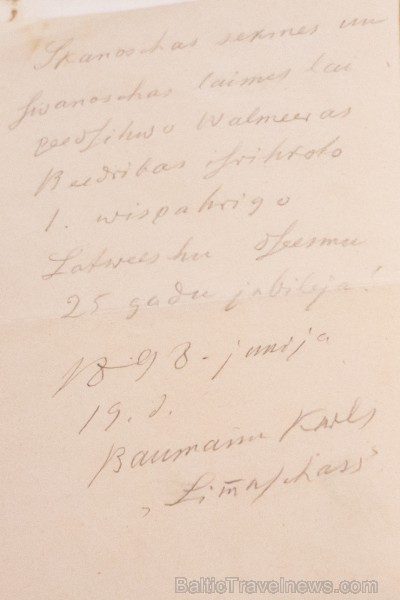 Skanoschas sekmes un
swanoschas laimes lai
peedsihwo Walmeeras
Beedribas isrihkoto
1. wispahrigo
Latweeshu dseesmu
25 gadu jubileja!
1898. junija
19. d.
Baumann Karls
„Limbaschass”
BalticTravelnews.com